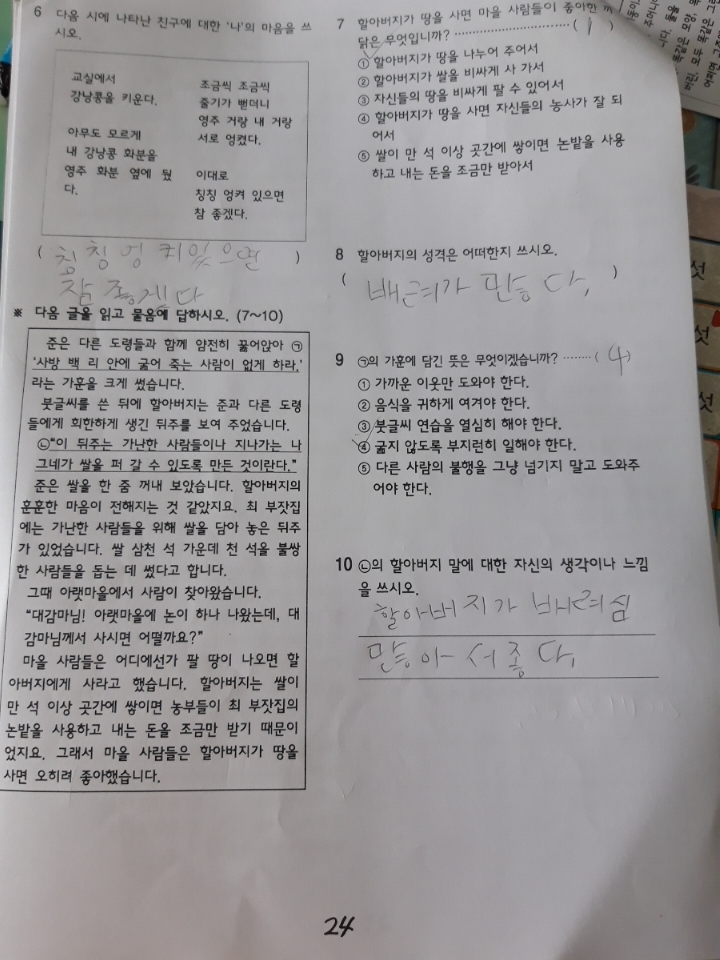 6 다음 시에 나타난 친구에 대한 '나'의 마음을 쓰
시오.
교실에서
강낭콩을 키운다.
아무도 모르게
내 강낭콩 화분을
영주 화분 옆에 뒀
다.
조금씩 조금씩
줄기가 뻗더니
영주 거랑 내 거랑
서로 엉켰다.
이대로
칭칭 엉켜 있으면
참 좋겠다.
( 칭칭 엉켜있으면 )
참 좋겠다
※ 다음 글을 읽고 물음에 답하시오. (7~10)
준은 다른 도령들과 함께 얌전히 꿇어앉아 ㉠
'사방 백 리 안에 굶어 죽는 사람이 없게 하라.'
라는 가훈을 크게 썼습니다.
붓글씨를 쓴 뒤에 할아버지는 준과 다른 도령
들에게 희한하게 생긴 뒤주를 보여 주었습니다.
㉡"이 뒤주는 가난한 사람들이나 지나가는 나
그네가 쌀을 퍼 갈 수 있도록 만든 것이란다."
준은 쌀을 한 줌 꺼내 보았습니다. 할아버지의
훈훈한 마음이 전해지는 것 같았지요. 최 부잣집
에는 가난한 사람들을 위해 쌀을 담아 놓은 뒤주
가 있었습니다. 쌀 삼천 석 가운데 천 석을 불쌍
한 사람들을 돕는 데 썼다고 합니다.
그때 아랫마을에서 사람이 찾아왔습니다.
"대감마님! 아랫마을에 논이 하나 나왔는데, 대
감마님께서 사시면 어떨까요?"
마을 사람들은 어디에선가 팔 땅이 나오면 할
아버지에게 사라고 했습니다. 할아버지는 쌀이
만 석 이상 곳간에 쌓이면 농부들이 최 부잣집의
논밭을 사용하고 내는 돈을 조금만 받기 때문이
었지요. 그래서 마을 사람들은 할아버지가 땅을
사면 오히려 좋아했습니다.
7 할아버지가 땅을 사면 마을 사람들이 좋아한
닭은 무엇입니까? ( 1 )
① 할아버지가 땅을 나누어 주어서
② 할아버지가 쌀을 비싸게 사 가서
③ 자신들의 땅을 비싸게 팔 수 있어서
④ 할아버지가 땅을 사면 자신들의 농사가 잘 되
어서
⑤ 쌀이 만 석 이상 곳간에 쌓이면 논밭을 사용
하고 내는 돈을 조금만 받아서
8 할아버지의 성격은 어떠한지 쓰시오.
( 배려가 많다. )
9 ㉠의 가훈에 담긴 뜻은 무엇이겠습니까? ( 4 )
① 가까운 이웃만 도와야 한다.
② 음식을 귀하게 여겨야 한다.
③ 붓글씨 연습을 열심히 해야 한다.
④ 굶지 않도록 부지런히 일해야 한다.
⑤ 다른 사람의 불행을 그냥 넘기지 말고 도와주
어야 한다.
10 ㉡의 할아버지 말에 대한 자신의 생각이나 느낌
을 쓰시오.
할아버지가 배려심
많아서좋다.
24